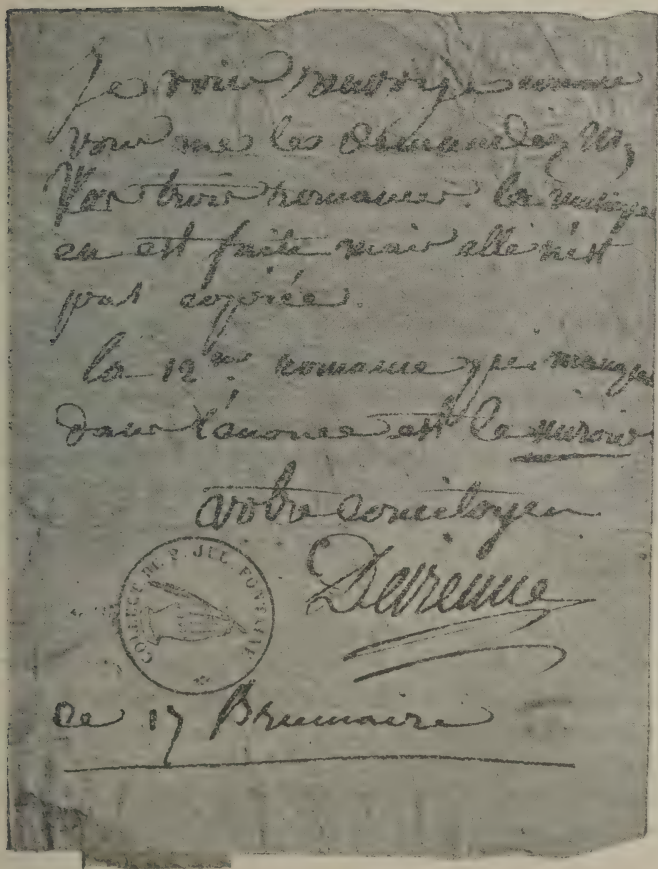 Je vous renvoye comme
vous me les demandez
vos trois romances. la musique
en est faite mais elle n'est
pas copiée.
la 12me romance qui manque
dans l'annonce est le miroir
votre concitoyen
Devienne
COLLECT DE P. JUL. FONTAINE
ce 17 Brumaire